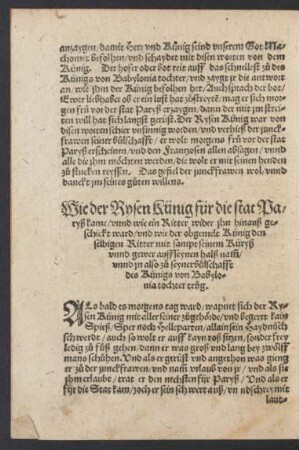 anzaygen / damit Herr vnd Künig seind vnserem Got Ma-
chomit befolhen / vnd schaydet mit disen worten von dem
Künig. Der hofer oder bot reit auff das schnellest zů des
Künigs von Babylonia tochter / vnd zaygt jr die antwort
an / wie jhm der Künig befolhen het / Auch sprach der bot /
Ewer liebhaber ob er ein lust hat zůstreytē / mag er sich mor-
gen frů vor der stat Paryß erzaygen / dann der mit jm strei-
ten will hat sich langst gerüst. Der Rysen Künig war von
disen worten schier vnsinnig worden / vnd verhieß der junck-
frawen seiner bůlschafft / er wolt morgens frů vor der stat
Paryß erscheinen / vnd den Frantzosen allen absagen / vnnd
alle die jhm möchten werden / die wolt er mit seinen henden
zů stucken reyssen. Das gefiel der junckfrawen wol / vnnd
danckt jm seines gůten willens.
Wie der Rysen Künig für die stat Pa-
ryß kame / vnnd wie ein Ritter wider jhn hinauß ge-
schickt ward / vnd wie der obgemelt Künig den
selbigen Ritter mit sampt seinem Küryß
vnnd gewer auff seynen halß nam /
vnnd jn also zů seyner bůlschafft
des Künigs von Babylo-
nia tochter trůg.
ALs bald es morgens tag ward / wapnet sich der Ry-
sen Künig mit aller seiner zůgehörde / vnd begeret kain
Spieß / Sper noch Helleparten / allain sein Haydnisch
schwerdt / auch so wolt er auff kayn roß sitzen / sonder frey
ledig zů fůß gehen / dann er was groß vnd lang bey zwölff
mans schůhen. Vnd als er gerüst vnd angethon was gieng
er zů der junckfrawen / vnd nam vrlaub von jr / vnd als sie
jhm erlaubt / trat er den nechsten für Paryß / Vnd als er
für die Stat kam / zoch er sein schwert auß / vnnd schrey mit
laut-